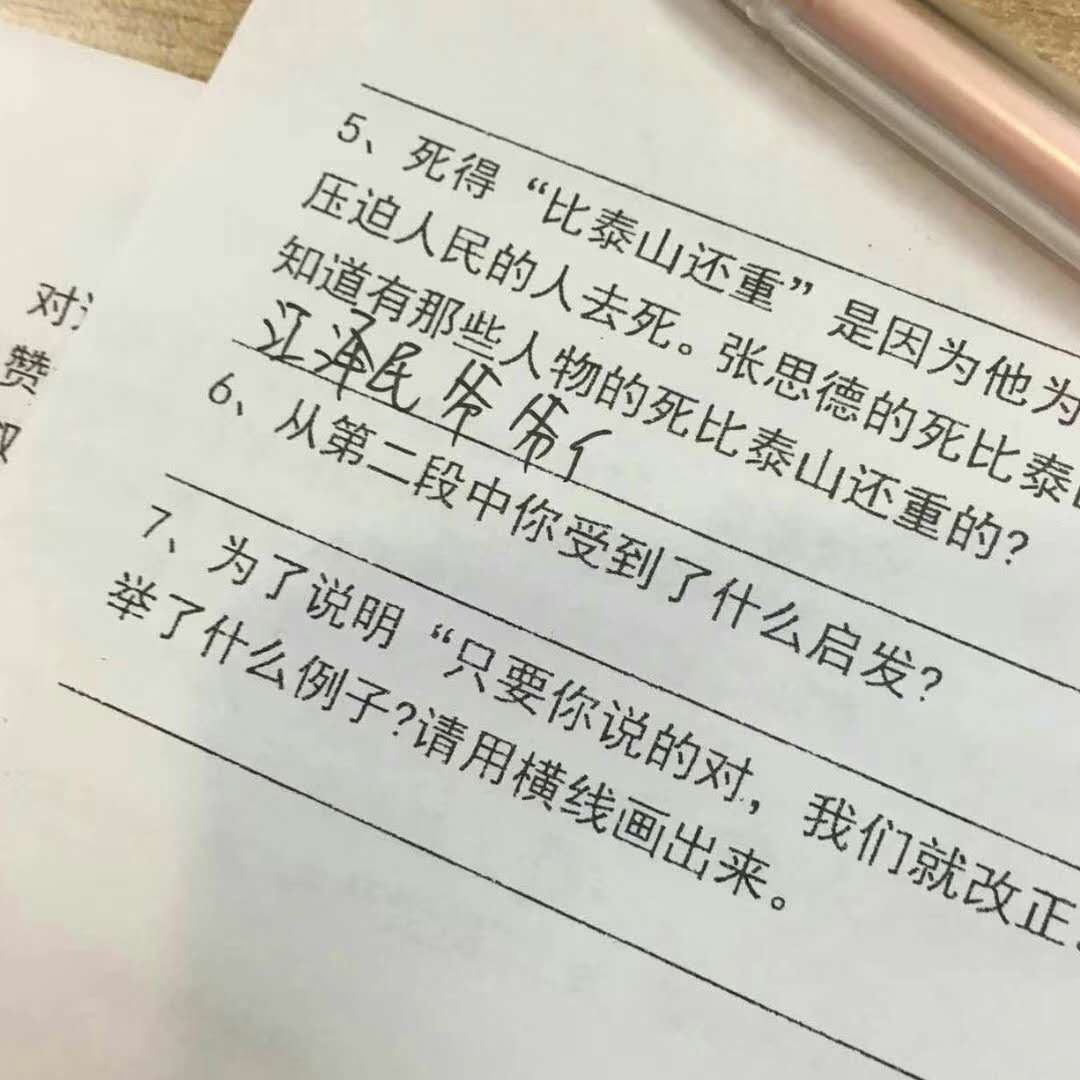 5、死得“比泰山还重”是因为他为
压迫人民的人去死。张思德的死比泰
知道有那些人物的死比泰山还重的?
江泽民爷爷
6、从第二段中你受到了什么启发?
7、为了说明“只要你说的对，我们就改正
举了什么例子?请用横线画出来。
对
赞